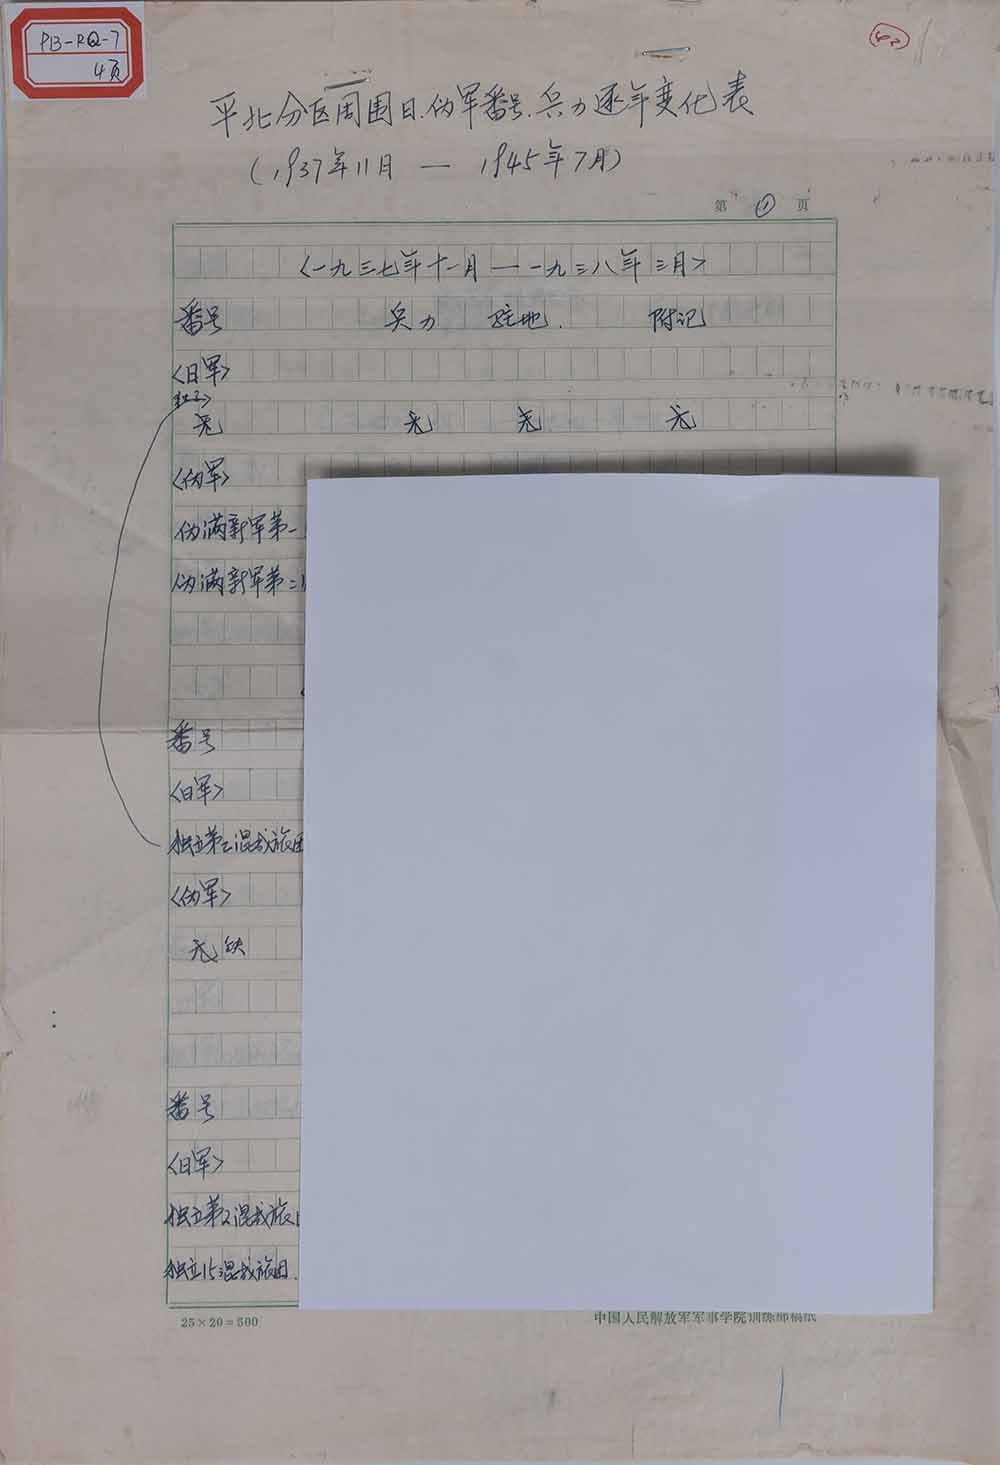 PB-RQ-7
4页
平北分区周围日.伪军番号.兵力逐年变化表
(1937年11月 — 1945年7月)
第 ① 页
<一九三七年十一月 — 一九三八年三月>
番号 兵力 驻地. 附记
<日军>
无 无 无 无
<伪军>
伪满新军第一
伪满新军第二
番号
<日军>
独立第2混成旅团
<伪军>
无缺
番号
<日军>
独立第2混成旅
独立15混成旅团.
25×20=500
中国人民解放军军事学院训练部稿纸